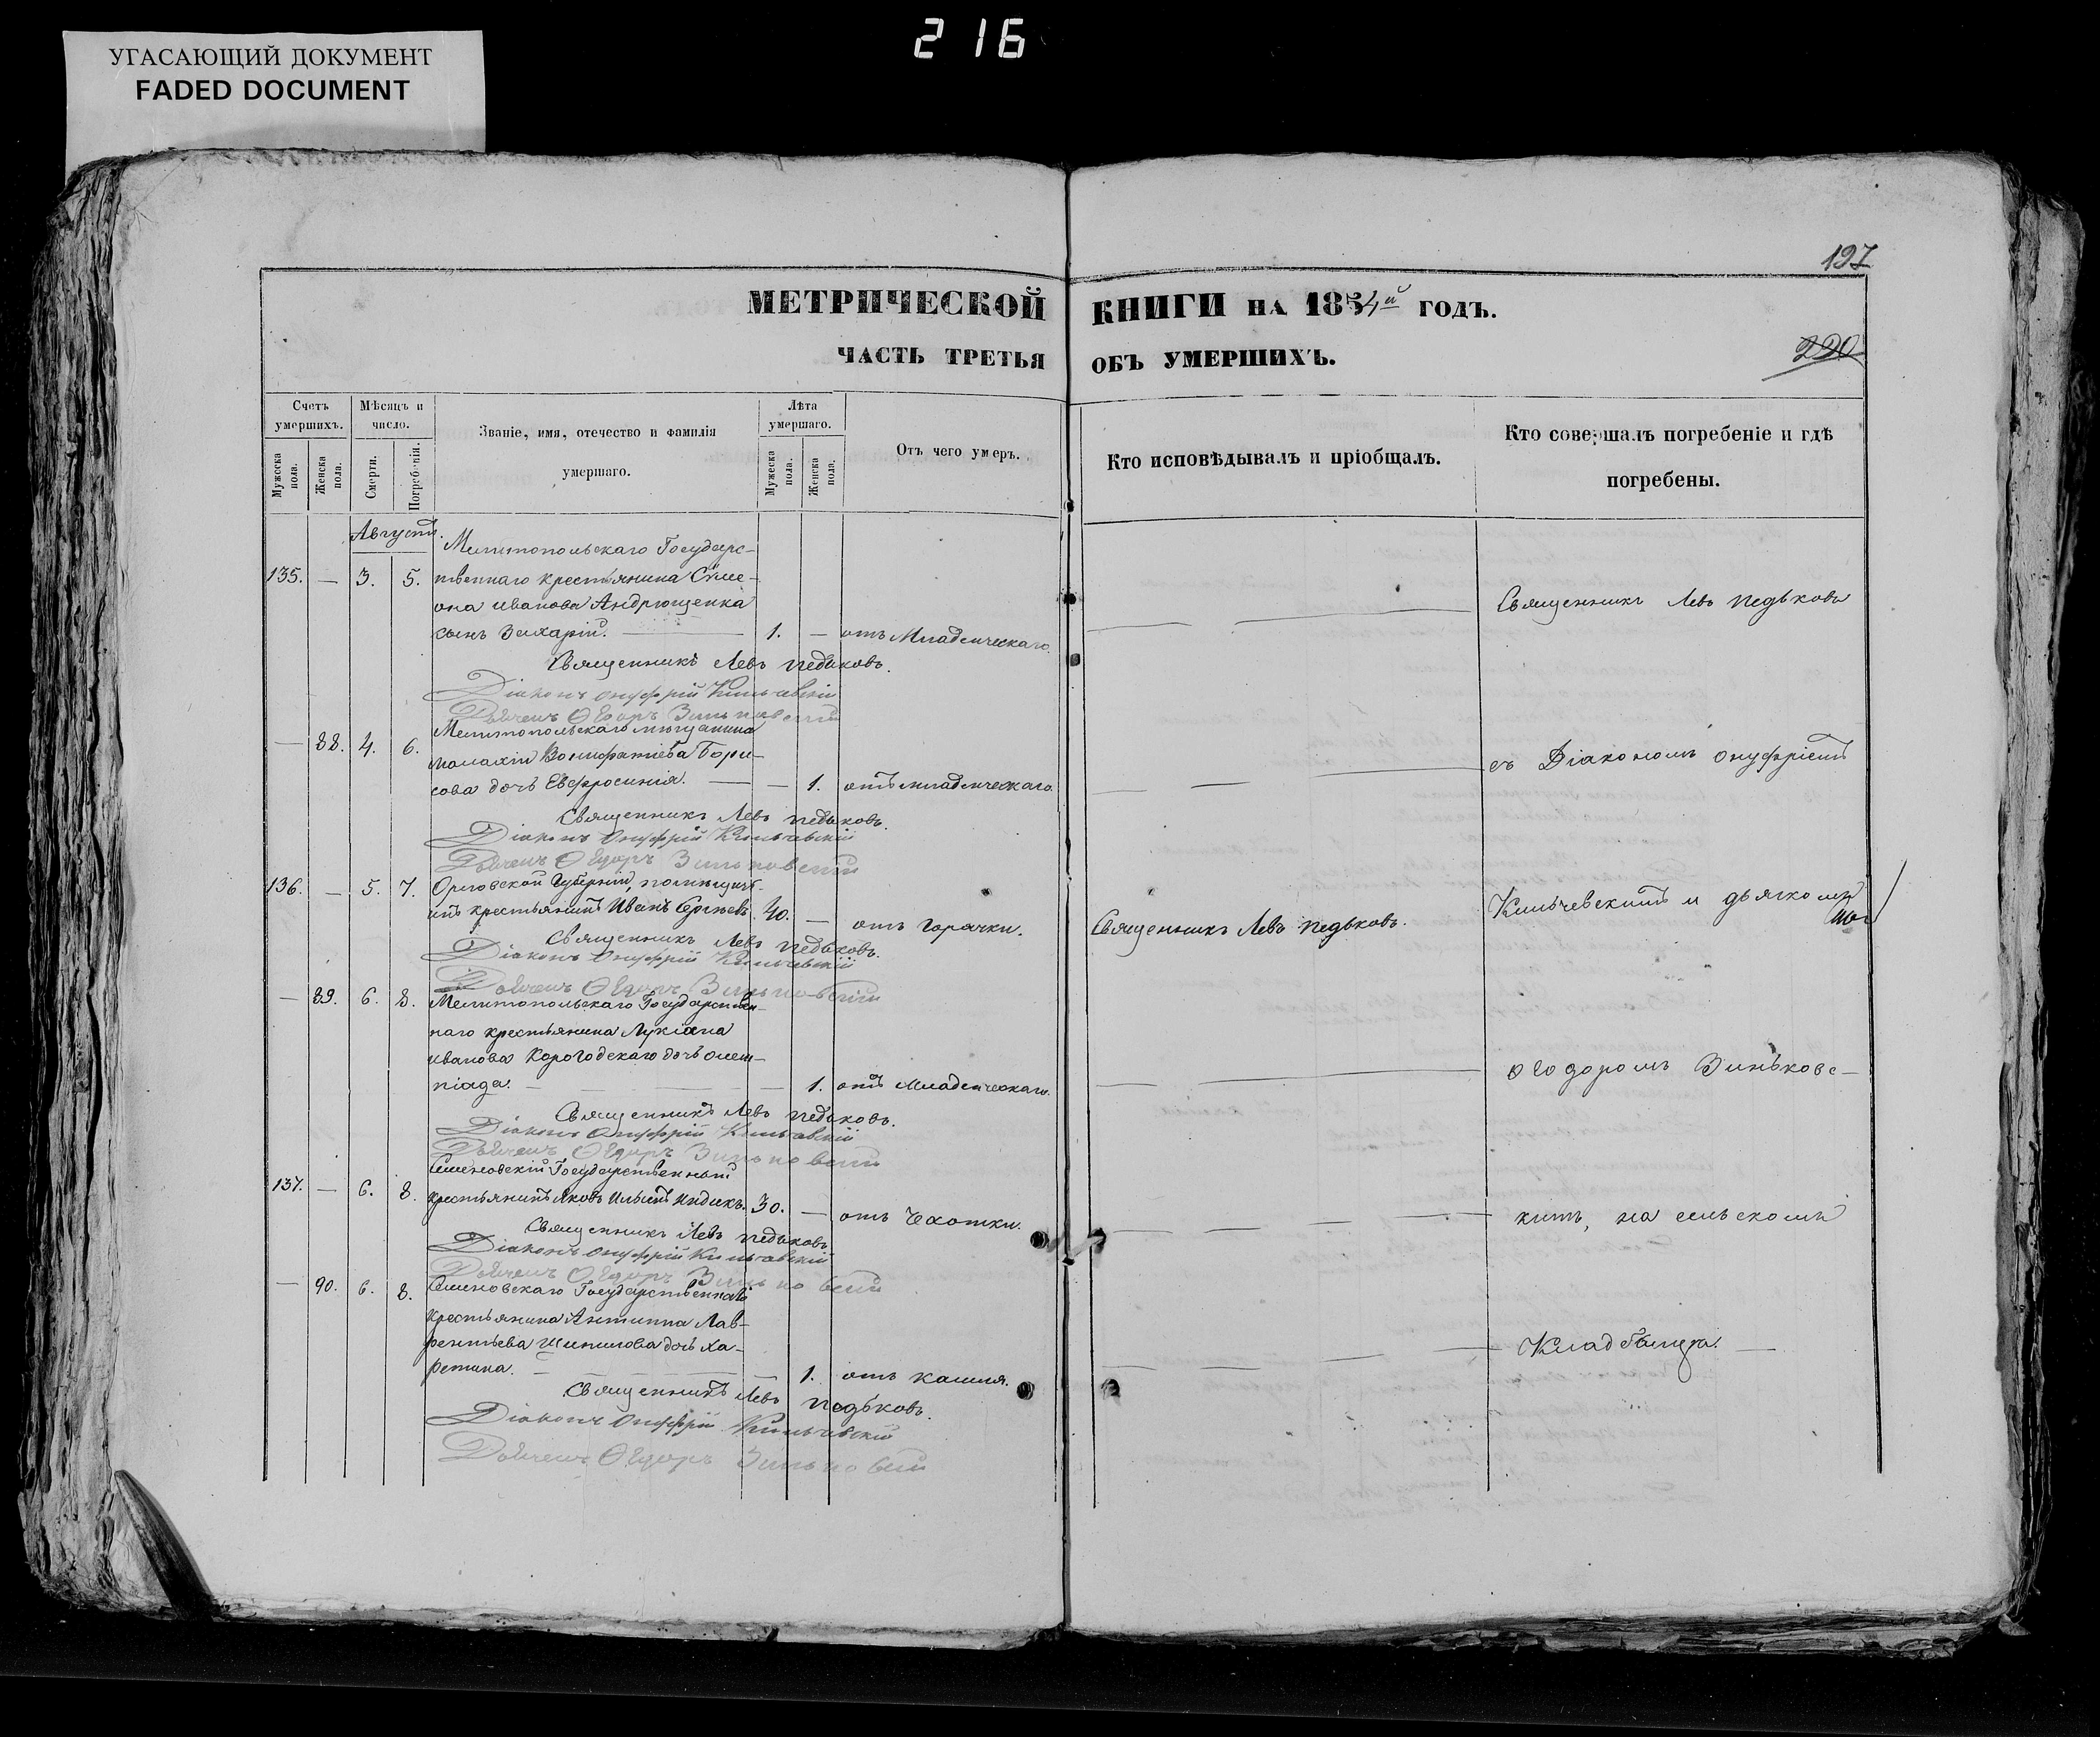 216
УГАСАЮЩИЙ ДОКУМЕНТ
FADED DOCUMENT
197
МЕТРИЧЕСКОЙ КНИГИ НА 1854й ГОДЪ.
ЧАСТЬ ТРЕТЬЯ ОБЪ УМЕРШИХЪ.
220
Счетъ умершихъ.
Мужеска пола.
Женска пола.
Мѣсяцъ и число.
Смерти.
Погребенія.
Званіе, имя, отечество и фамилія
умершаго.
Лѣта умершаго.
Мужеска пола.
Женска пола.
Отъ чего умеръ.
Кто исповѣдывалъ и пріобщалъ.
Кто совершалъ погребеніе и гдѣ
погребены.
Августъ.
Мелитопольскаго Государс-
135. — 3. 5. твеннаго крестьянина Симе-
она Иванова Андрющенка
сынъ Захарій. — 1. — отъ Младенческаго.
Священникъ Левъ Педьковъ.
Діаконъ Онуфрій Кильчевскій
Дьячекъ Ѳеодоръ Зиньковскій
Мелитопольскаго мѣщанина
— 88. 4. 6. Малахіи Вонифатіева Бори-
сова дочь Евфросинія. — — 1. отъ младенческаго.
Священникъ Левъ Педьковъ.
Діаконъ Онуфрій Кильчевскій
Дьячекъ Ѳеодоръ Зиньковскій
136. — 5. 7. Орловской Губерніи, помѣщич-
ій крестьянинъ Иванъ Сергѣевъ 40. — отъ горячки.
Священникъ Левъ Педьковъ.
Діаконъ Онуфрій Кильчевскій
Дьячекъ Ѳеодоръ Зиньковскій
— 89. 6. 8. Мелитопольскаго Государствен-
наго крестьянина Лукіана
Иванова Корогодскаго дочь Олим-
піада. — — 1. отъ Младенческаго.
Священникъ Левъ Педьковъ.
Діаконъ Онуфрій Кильчевскій
Дьячекъ Ѳеодоръ Зиньковскій
Семеновскій Государственный
137. — 6. 8. крестьянинъ Яковъ Ильинъ Индикъ. 30. — отъ Чахотки.
Священникъ Левъ Педьковъ
Діаконъ Онуфрій Кильчевскій
Дьячекъ Ѳеодоръ Зиньковскій
— 90. 6. 8. Семеновскаго Государственнаго
крестьянина Антиппа Лав-
рентьева Шипилова дочь Ха-
ретина. — — 1. отъ кашля.
Священникъ Левъ Педьковъ.
Діаконъ Онуфрій Кильчевскій
Дьячекъ Ѳеодоръ Зиньковскій
Священникъ Левъ Педьковъ.
Священникъ Левъ Педьковъ
съ Діакономъ Онуфріемъ
Кильчевскимъ и дьячкомъ
Ѳеодоромъ Зиньковс-
кимъ, на сельскомъ
Кладбищѣ.